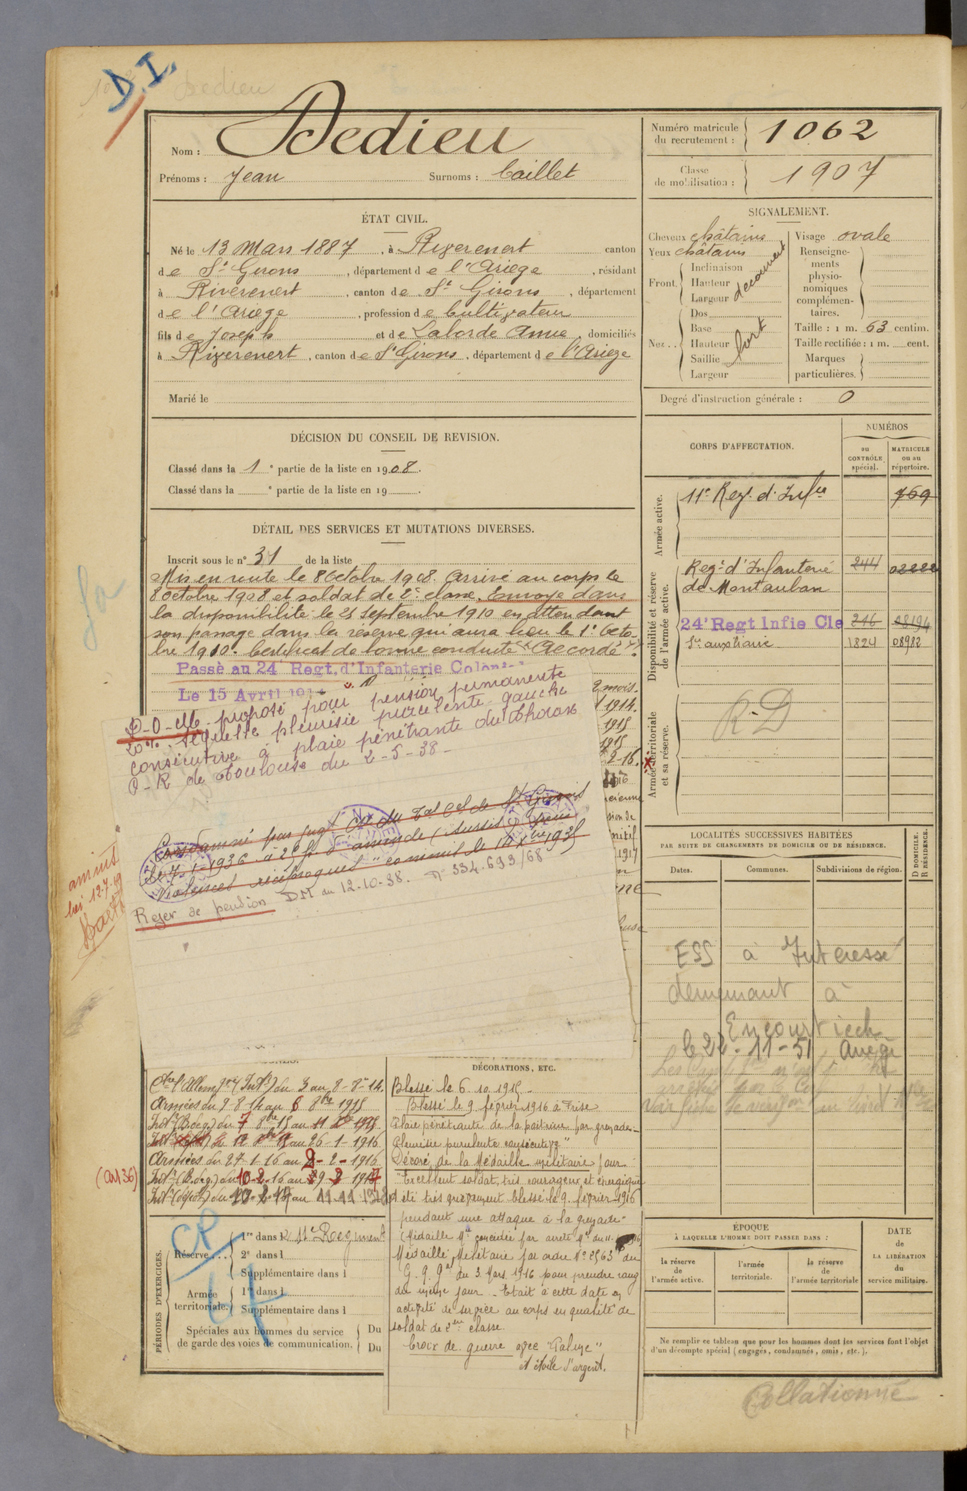 D.I.
Dedieu
Nom : Dedieu
Prénoms : Jean Surnoms : Caillet
Numéro matricule du recrutement : 1062
Classe de mobilisation : 1907
ÉTAT CIVIL.
Né le 13 Mars 1887, à Riverenert canton
de St Girons, département de l'Ariège, résidant
à Riverenert, canton de St Girons, département
de l'Ariège, profession de Cultivateur
fils de Joseph et de Laborde Anne, domiciliés
à Riverenert, canton de St Girons, département de l'Ariège
Marié le
SIGNALEMENT.
Cheveux châtains
Yeux châtains
Front. Inclinaison
Hauteur
Largeur découvert
Nez. Dos
Base
Hauteur fort
Saillie
Largeur
Visage ovale
Renseignements physionomiques complémentaires.
Taille : 1 m. 63 centim.
Taille rectifiée : 1 m. cent.
Marques particulières.
Degré d'instruction générale : 0
DÉCISION DU CONSEIL DE REVISION.
Classé dans la 1e partie de la liste en 1908.
Classé dans la e partie de la liste en 19 .
DÉTAIL DES SERVICES ET MUTATIONS DIVERSES.
Inscrit sous le n° 31 de la liste
Mis en route le 8 Octobre 1908. Arrivé au corps le
8 octobre 1908 et soldat de 2e classe. Envoyé dans
la disponibilité le 25 Septembre 1910 en attendant
son passage dans la réserve qui aura lieu le 1er Octo-
bre 1910. Certificat de bonne conduite "Accordé".
Passé au 24e Regt. d'Infanterie Colon
Le 15 Avril
propose pour pension permanente
20% séquelle pleurésie purulente gauche
consécutive à plaie pénétrante du thorax
C-R de Toulouse du 2-5-38-
Condamné par jugt du Tal Cel de St Girons
1936 à 25 fr d'amende (sursis)
violences réciproques commis le 1935
Rejet de pension DM du 12-10-38. n° 554.693/68
amnistié
loi 12-7-
CORPS D'AFFECTATION.
NUMÉROS
au CONTRÔLE spécial.
MATRICULE ou au répertoire.
Armée active.
11e Regt d'Infie 769
Disponibilité et réserve de l'armée active.
Regt d'Infanterie 244
de Montauban
24e Regt Infie Cle
Son auxiliaire 1824
Armée territoriale et sa réserve.
R-D
LOCALITÉS SUCCESSIVES HABITÉES
PAR SUITE DE CHANGEMENTS DE DOMICILE OU DE RÉSIDENCE.
Dates. Communes. Subdivisions de région. D DOMICILE. R RÉSIDENCE.
ESS à Intéressé
demeurant à
Encourtiech
le 22-11-51 Ariège
DÉCORATIONS, ETC.
Ctre l'Allemagne (Intr) du 3 au 8-8-14.
Armées du 9-8-14 au 6 8bre 1915
Intr (Bleg) du 7 8bre 15 au
au 26-1-1916
Armées du 27-1-16 au 9-2-1916
Intr (Bleg) du 10-2-16 au
Intr (dépôt) du
(art 36)
Blessé le 6.10.1915
Blessé le 9 février 1916 à Frise
Plaie pénétrante de la poitrine par grenade -
Pleurésie purulente consécutive"
Décoré de la Médaille militaire pour
"Excellent soldat, très courageux et énergique
A été très grièvement blessé le 9 février 1916
pendant une attaque à la grenade -
(Médaille Mre concédée par arrêté
Médaille Militaire par ordre N° 2563 du
G.Q.Gal du 3 Mars 1916 pour prendre rang
du même jour. Etait à cette date en
activité de service au corps en qualité de
soldat de 2ème classe.
Croix de guerre avec Palme"
et étoile d'argent.
PÉRIODES D'EXERCICES.
Réserve 1re dans l 11e Regiment
2e dans l
Supplémentaire dans l
Armée territoriale. 1re dans l
Supplémentaire dans l
Spéciales aux hommes du service Du
de garde des voies de communication. Du
ÉPOQUE
À LAQUELLE L'HOMME DOIT PASSER DANS :
la réserve de l'armée active.
l'armée territoriale.
la réserve de l'armée territoriale
DATE de LA LIBÉRATION du service militaire.
Ne remplir ce tableau que pour les hommes dont les services font l'objet
d'un décompte spécial (engagés, condamnés, omis, etc.).
Collationné